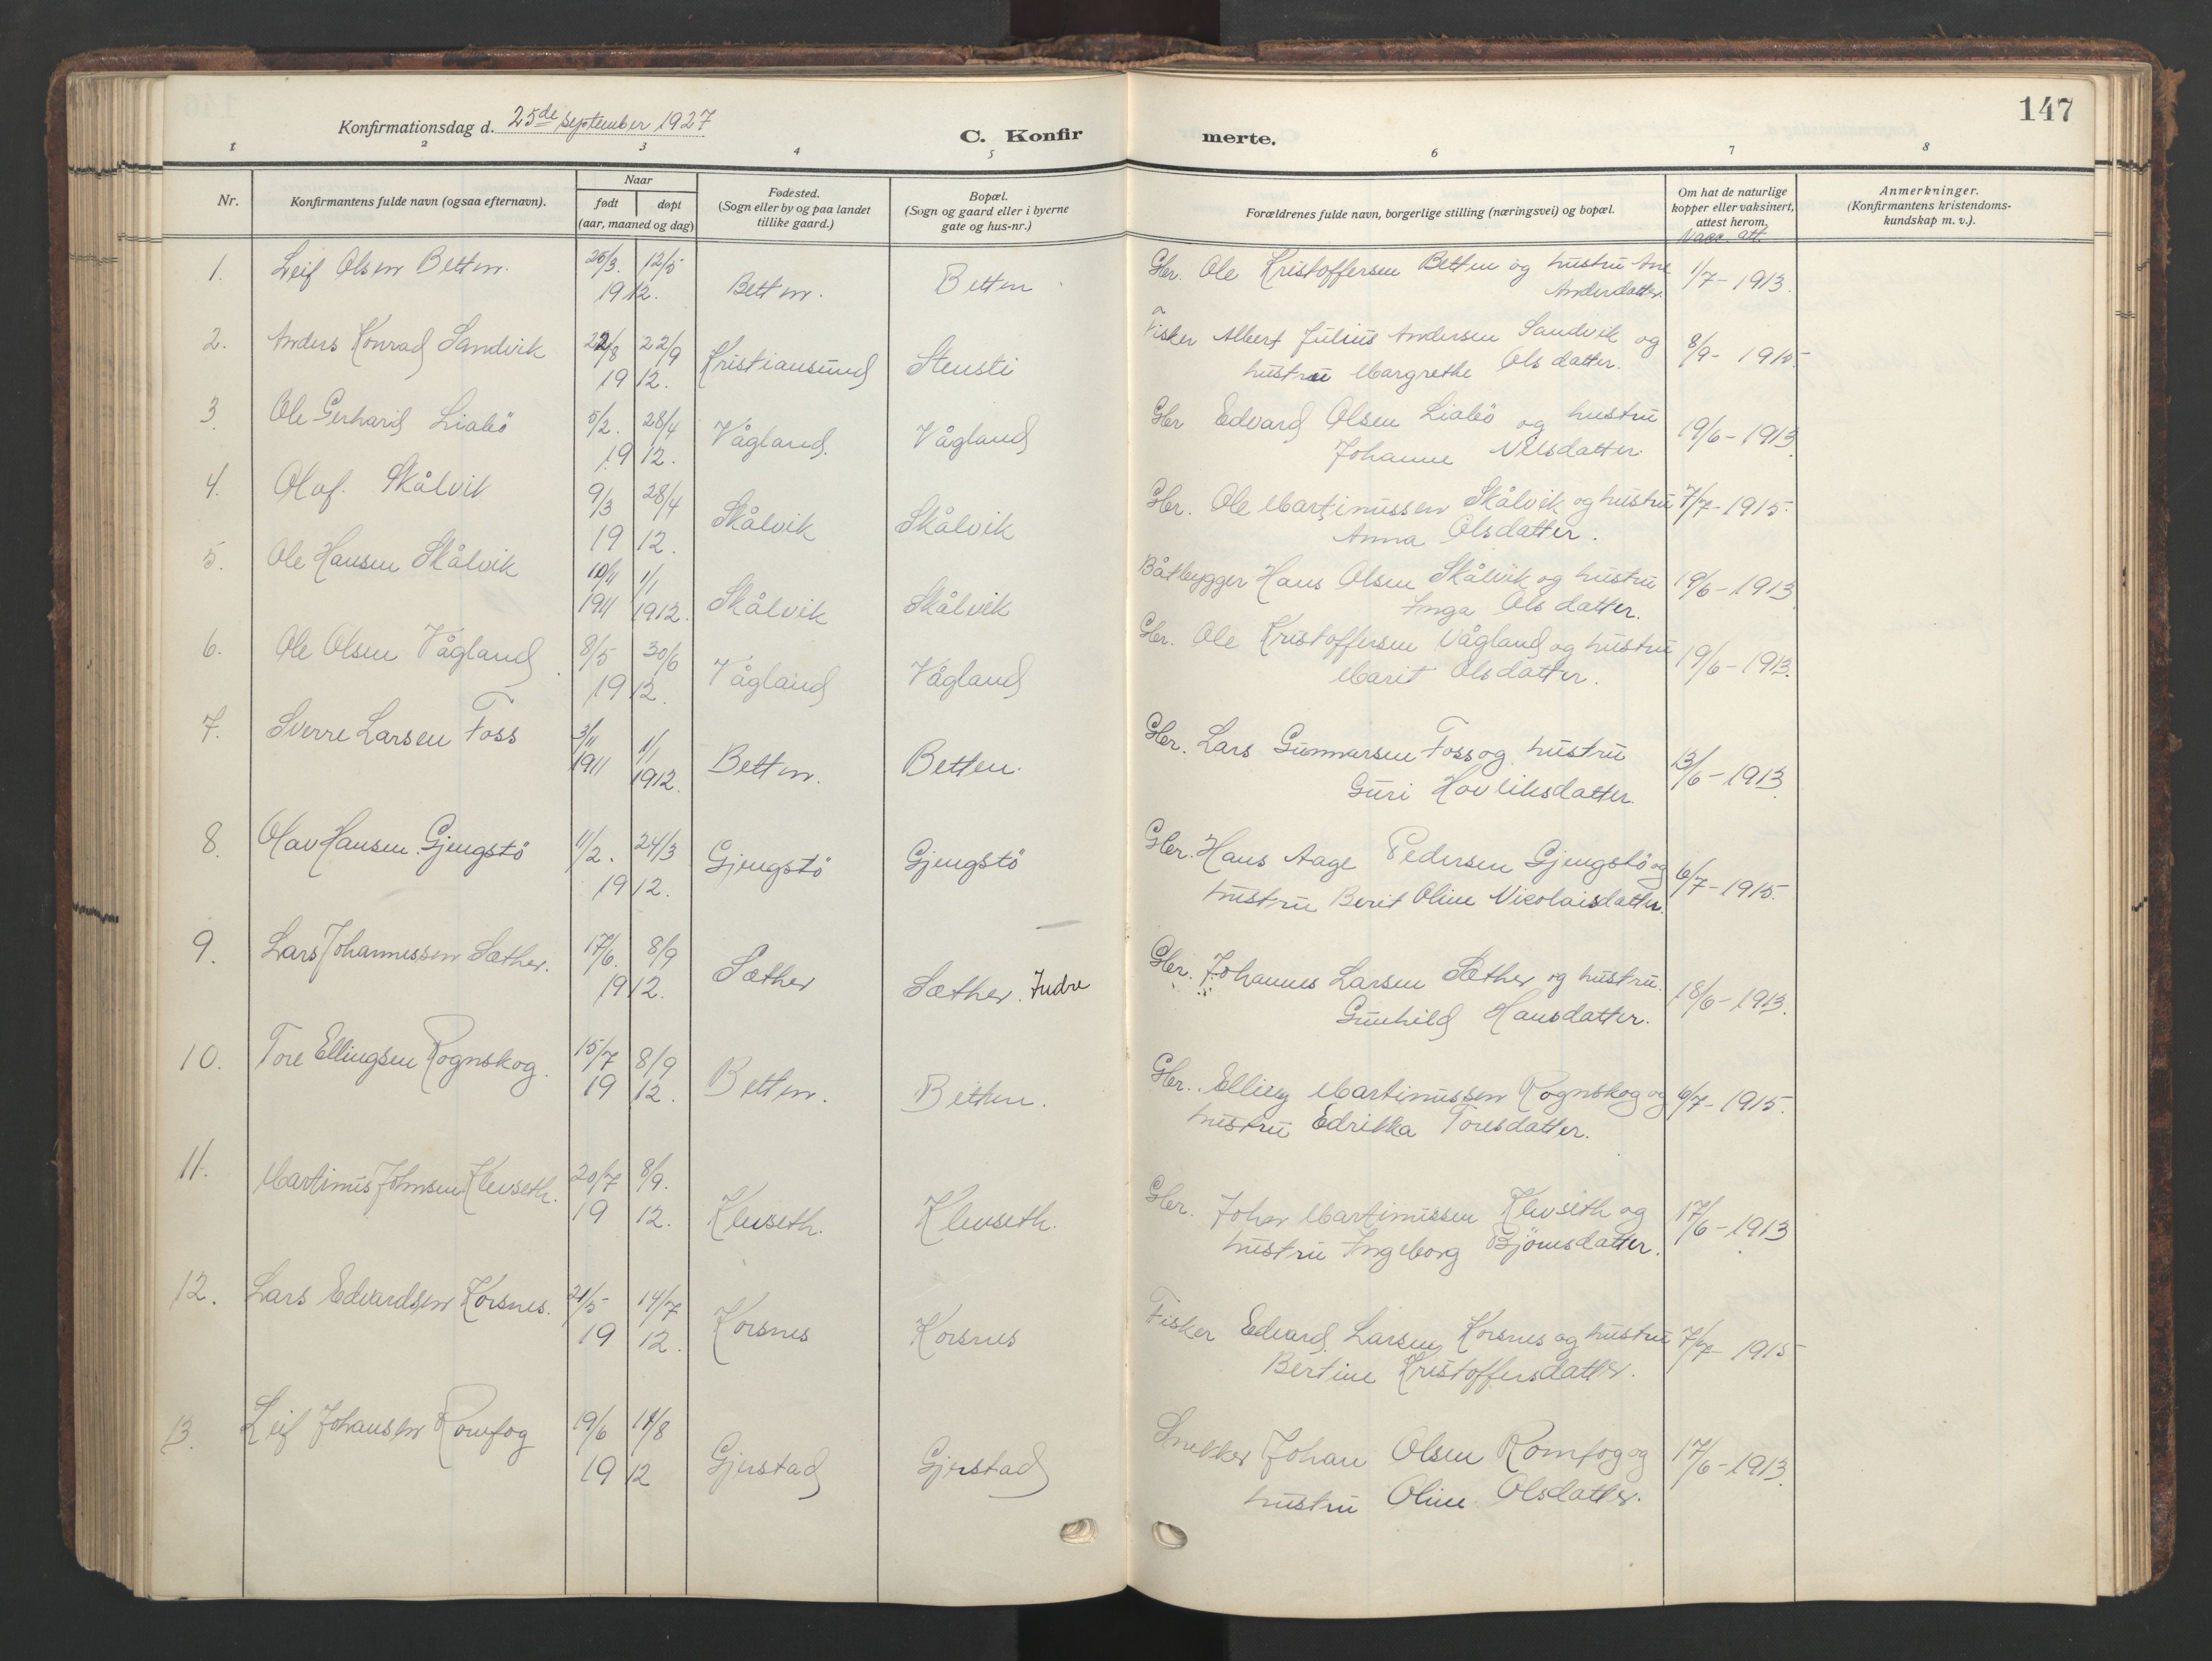 147
Konfirmationsdag d. 25de september 1927
C. Konfir merte.
1 2 3 4 5 6 7 8
Nr.
Konfirmantens fulde navn (ogsaa efternavn).
Naar
født døpt
(aar, maaned og dag)
Fødested.
(Sogn eller by og paa landet
tillike gaard.)
Bopæl.
(Sogn og gaard eller i byerne
gate og hus-nr.)
Forældrenes fulde navn, borgerlige stilling (næringsvei) og bopæl.
Om hat de naturlige
kopper eller vaksinert,
attest herom.
Vacc. att.
Anmerkninger.
(Konfirmantens kristendoms-
kundskap m. v.).
1. Leif Olsen Betten. 12/5 Gbr. Ole Kristoffersen Betten og hustru Ane
1912. Betten. Betten Andersdatter. 1/7-1913.
2. Anders Konrad Sandvik 22/8 22/9 Fisker Albert Julius Andersen Sandvik og
1912. Kristiansund Stensli hustru Margrethe Olsdatter. 8/9-1915
3. Ole Gerhard Liabö 5/2. 28/4 Gbr Edvard Olsen Liabö og hustru
1912. Vågland. Vågland Johanne Nilsdatter. 19/6-1913.
4. Olaf. Skålvik 9/3 28/4 Gbr. Ole Martinussen Skålvik og hustru 7/7-1915.
1912. Skålvik Skålvik Anna Olsdatter.
5. Ole Hansen Skålvik 10/11 1/1 Båtbygger Hans Olsen Skålvik og hustru 19/6-1913.
1911 1912. Skålvik Skålvik Inga Olsdatter.
6. Ole Olsen Vågland. 8/5 30/6 Gbr. Ole Kristoffersen Vågland og hustru
1912. Vågland Vågland Marit Olsdatter. 19/6-1913.
7. Sverre Larsen Foss 3/11 1/1 Gbr. Lars Gunnarsen Foss og hustru
1911 1912. Betten. Betten. Guri Havliksdatter. 13/6-1913.
8. Olav Hansen Gjengstö 11/2. 24/3 Gbr. Hans Aage Pedersen Gjengstö og
1912. Gjengstö Gjengstö hustru Berit Oline Nicolaisdatter. 6/7-1915.
9. Lars Johannessen Sæther. 17/6. 8/9 Gbr. Johannes Larsen Sæther og hustru.
1912. Sæther Sæther. Indre Gunhild Hansdatter. 18/6-1913.
10. Tore Ellingsen Rognskog. 15/7 8/9 Gbr. Elling Martinussen Rognskog og 6/7-1915.
1912. Betten. Betten. hustru Edrikka Toresdatter.
11. Martinus Johnsen Klevseth. 20/7 8/9. Gbr. John Martinussen Klevseth og
1912. Klevseth. Klevseth. hustru Ingeborg Björnsdatter. 17/6-1913.
12. Lars Edvardsen Korsnes. 21/5 14/7 Fisker Edvard Larsen Korsnes og hustru 7/7-1915
1912. Korsnes Korsnes Bertine Kristoffersdatter.
13. Leif Johansen Romfog 19/6 11/8 Snekker Johan Olsen Romfog og
1912 Gjerstad Gjerstad hustru Oline Olsdatter. 17/6-1913.